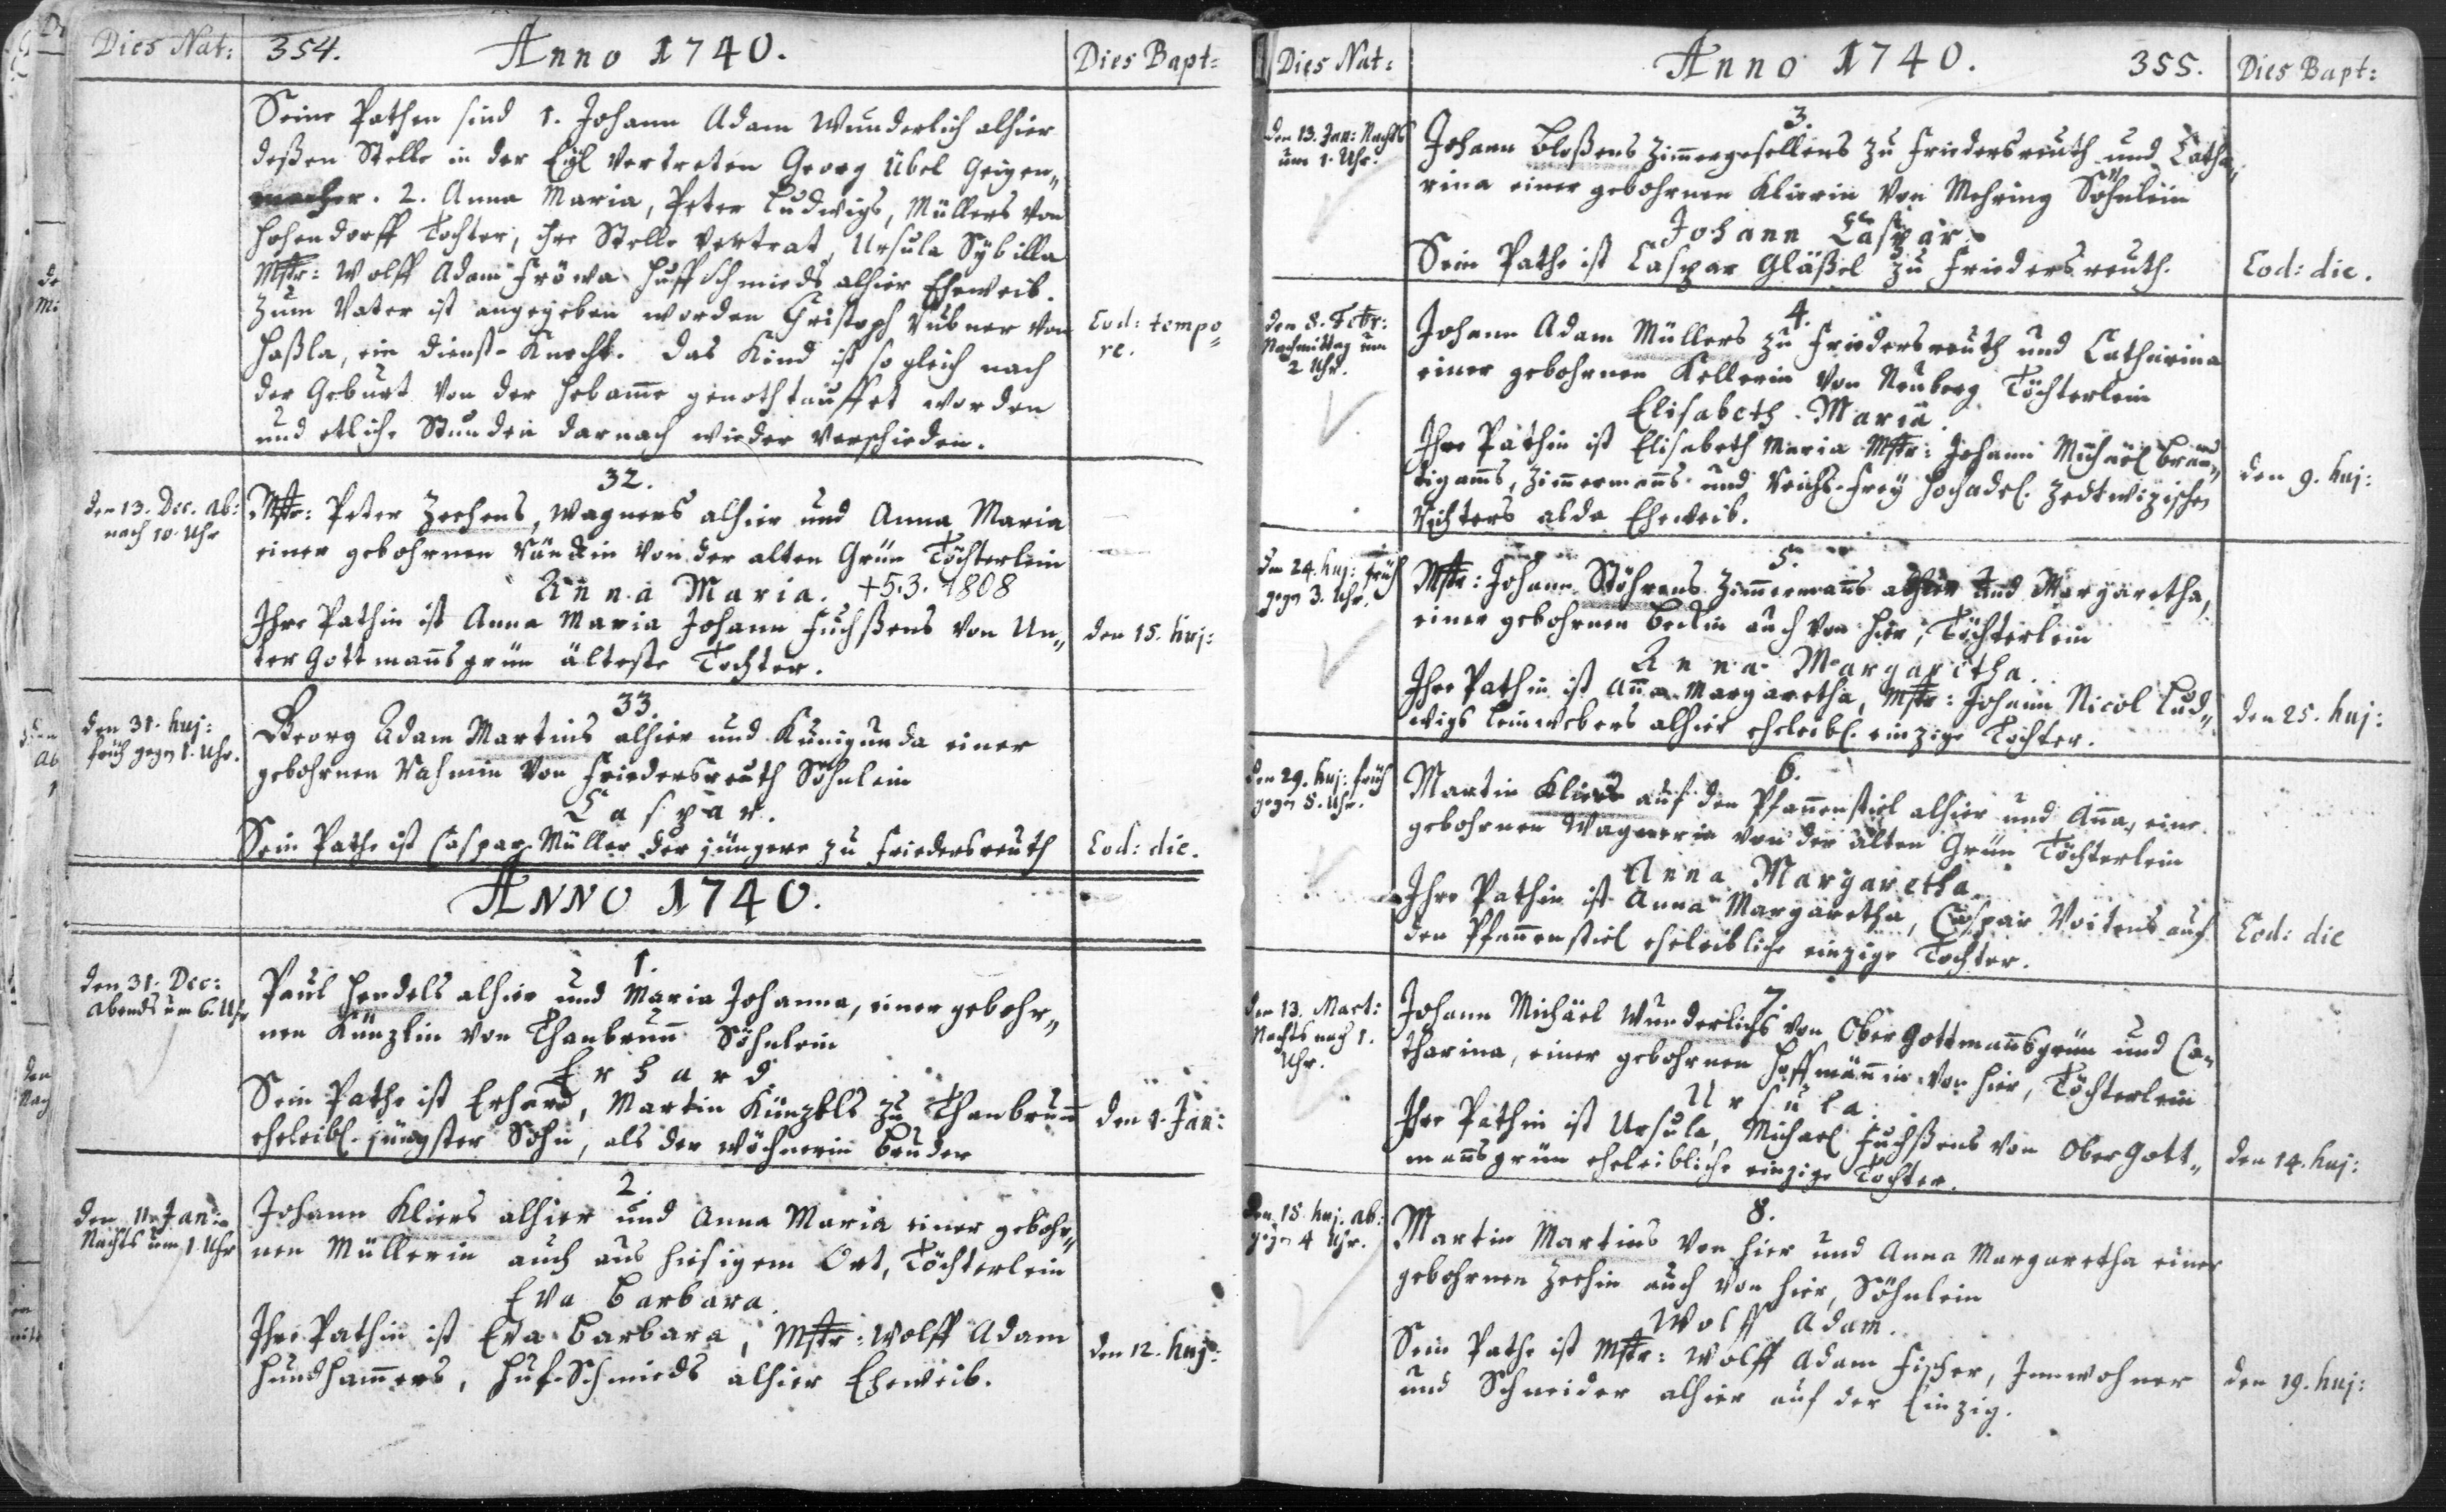 Dies Nat: 354. Anno 1740. Dies Bapt:
Seine Pathen sind 1. Johann Adam Wunderlich alhier
deßen Stelle in der Eyl vertreten Georg Übel Geigen„
macher. 2. Anna Maria, Peter Ludwigs, Müllers von
Hohendorff Tochter, ihre Stelle vertrat, Ursula Sybilla
Mstr: Wolff Adam Huffschmieds alhier Eheweib.
Zum Vater ist angegeben worden Christoph Rubner von
Haßla, ein Dienst-Knecht. Das Kind ist sogleich nach
der Geburt von der Hebamme genothtauffet worden
und etliche Stunden darnach wieder verschieden.
Eod: tempo„
re.
32.
den 13. Dec. Ab:
nach 10. Uhr
Mstr: Peter Zeehens, Wagners alhier und Anna Maria
einer gebohrnen von der alten Grün Töchterlein
Anna Maria. +5.3.1808
Ihre Pathin ist Anna Maria Johann Fuchßens von Un„
ter Gottmañsgrün älteste Tochter.
den 15. huj:
33.
den 31. huj:
früh gegen 1. Uhr.
Georg Adam Martins alhier und Kunigunda einer
gebohrnen Rahmin von Friedersreuth Söhnlein
Caspar.
Sein Pathe ist Caspar Müller der jüngere zu Friedersreuth
Eod: die.
ANNO 1740.
1.
den 31. Dec:
Abends um 6. Uhr
Paul Hendels alhier und Maria Johanna, einer gebohr„
nen Künzlin von Thanbrunn Söhnlein
Erhard
Sein Pathe ist Erhard, Martin Künzels zu Thanbrunn
eheleibl. jüngster Sohn, als der Wöchnerin Bruder
den 1. Jan:
2.
den 11. Jan:
Nachts um 1. Uhr
Johann Kliers alhier und Anna Maria einer gebohr„
nen Müllerin auch aus hiesigem Ort, Töchterlein
Eva Barbara.
Ihre Pathin ist Eva Barbara, Mstr: Wolff Adam
Hundham̃ers, Huf-Schmieds alhier Eheweib.
den 12. huj:
Dies Nat: Anno 1740. 355. Dies Bapt:
3.
den 13. Jan: Nachts
um 1. Uhr.
Johann Bloßens Zim̃ergesellens zu Friedersreuth und Catha„
rina einer gebohrnen Klierin von Mehring Söhnlein
Johann Caspar.
Sein Pathe ist Caspar Gläßel zu Friedersreuth.
Eod: die.
4.
den 8. Febr:
Nachmittag um
2 Uhr.
Johann Adam Müllers zu Friedersreuth und Catharina
einer gebohrnen Kellerin von Neuberg Töchterlein
Elisabeth Maria.
Ihre Pathin ist Elisabeth Maria Mstr: Johann Michael
Zim̃ermañs und Reichs-Frey Hochadel. Zedtwizischen
Richters alda Eheweib.
den 9. huj:
5.
den 24. huj: früh
gegen 3. Uhr.
Mstr: Johann Stöhrens Zim̃ermañs alhier und Margaretha,
einer gebohrnen Beckin auch von hier, Töchterlein
Anna Margaretha.
Ihre Pathin ist Añа Margaretha, Mstr: Johann Nicol Lud„
wigs Leinwebers alhier eheleibl. einzige Tochter.
den 25. huj:
6.
den 29. huj: früh
gegen 8. Uhr.
Martin Kliers auf den Pfañenstiel alhier und Aña, eine
gebohrnen Wagnerin von der alten Grün Töchterlein
Anna Margaretha
Ihre Pathin ist Anna Margaretha, Caspar Voitens auf
den Pfañenstiel eheleibliche einzige Tochter.
Eod: die
7.
den 13. Mart:
Nachts nach 1.
Uhr.
Johann Michäel Wunderlichs von Ober Gottmañsgrün und Ca„
tharina, einer gebohrnen Hoffmäñin von hier, Töchterlein
Ursula.
Ihre Pathin ist Ursula, Michael Fuchßens von Ober Gott„
mañsgrün eheleibliche einzige Tochter.
den 14. huj:
8.
den 18. huj. Ab:
gegen 4 Uhr.
Martin Martins von hier und Anna Margaretha einer
gebohrnen Zeehin auch von hier, Söhnlein
Wolff Adam.
Sein Pathe ist Mstr: Wolff Adam Fischer, Innwohner
und Schneider alhier auf der Einzig.
den 19. huj: